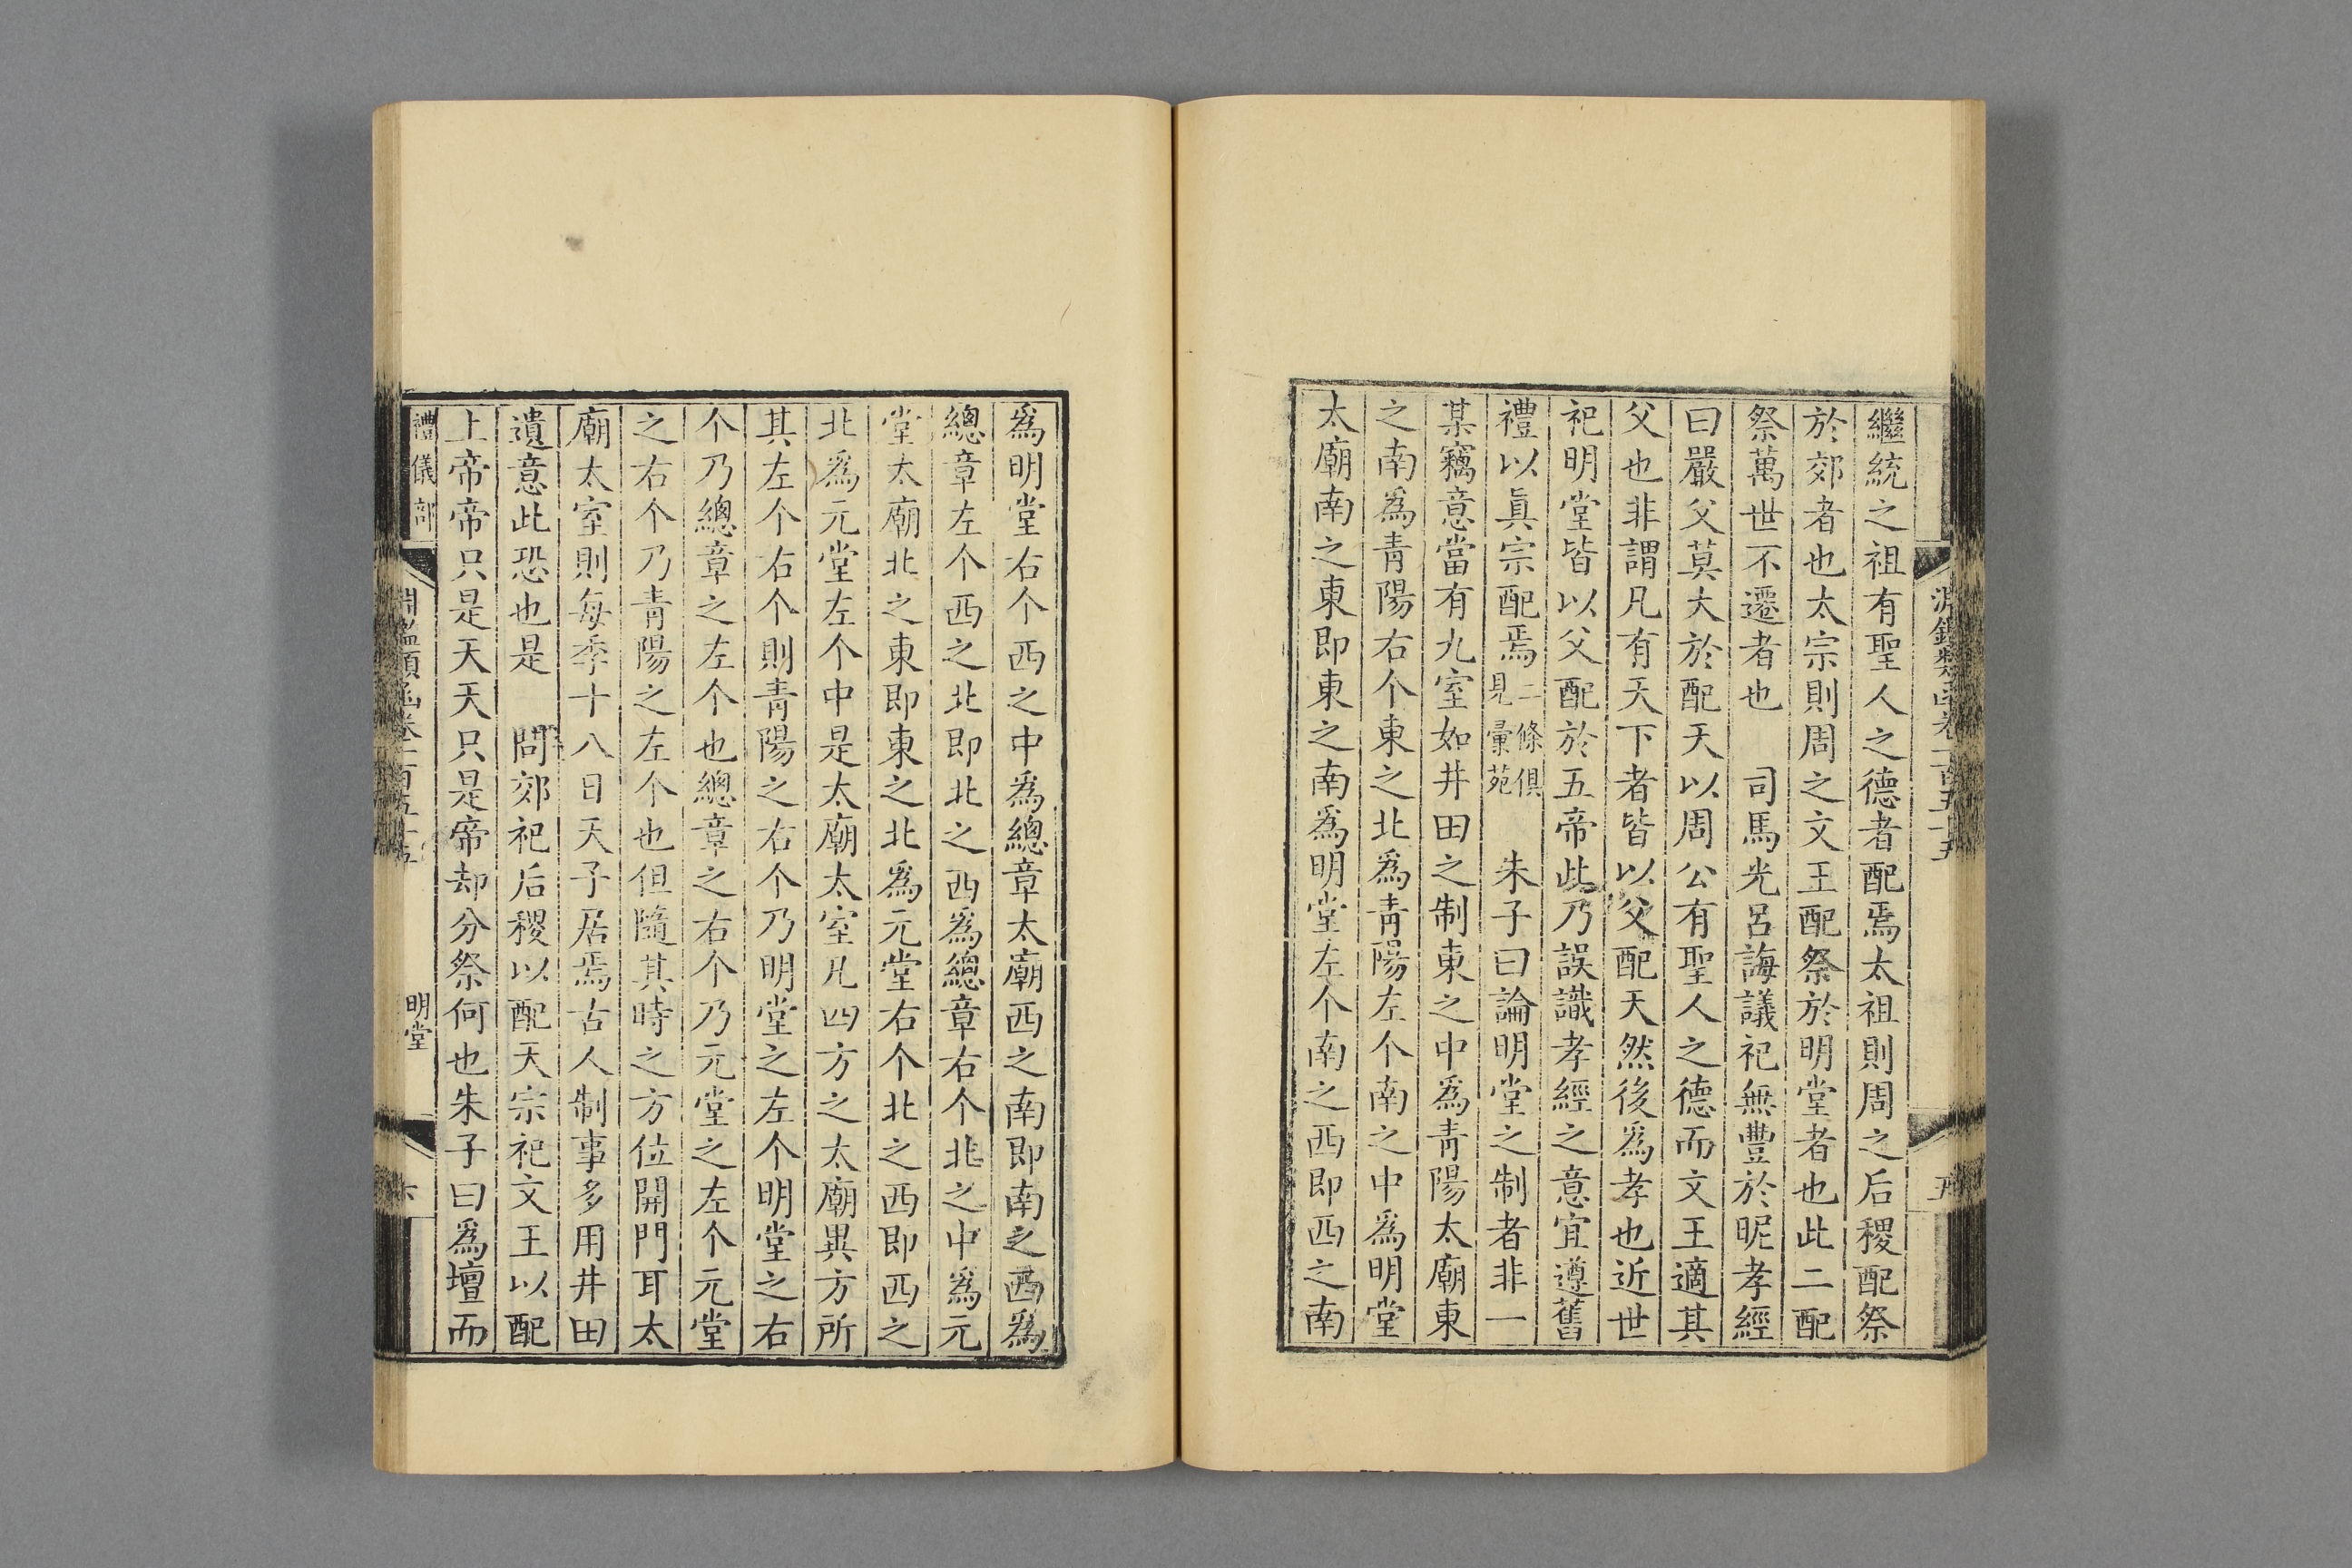 繼統之祖有聖人之德者配焉太祖則周之后稷配祭
於郊者也太宗則周之文王配祭於明堂者也此二配
祭萬世不遷者也　司馬光呂誨議祀無豐於昵孝經
曰嚴父莫大於配天以周公有聖人之德而文王適其
父也非謂凡有天下者皆以父配天然後爲孝也近世
祀明堂皆以父配於五帝此乃誤識孝經之意宜遵舊
禮以眞宗配焉二條俱見彙苑　朱子曰論明堂之制者非一
某竊意當有九室如井田之制東之中爲青陽太廟東
之南爲青陽右个東之北爲青陽左个南之中爲明堂
太廟南之東即東之南爲明堂左个南之西即西之南
爲明堂右个西之中爲總章太廟西之南即南之西爲
總章左个西之北即北之西爲總章右个北之中爲元
堂太廟北之東即東之北爲元堂右个北之西即西之
北爲元堂左个中是太廟太室凡四方之太廟異方所
其左个右个則青陽之右个乃明堂之左个明堂之右
个乃總章之左个也總章之右个乃元堂之左个元堂
之右个乃青陽之左个也但隨其時之方位開門耳太
廟太室則每季十八日天子居焉古人制事多用井田
遺意此恐也是　問郊祀后稷以配天宗祀文王以配
上帝帝只是天天只是帝却分祭何也朱子曰爲壇而
禮儀部
淵鑑類函卷一百五十五
明堂
六